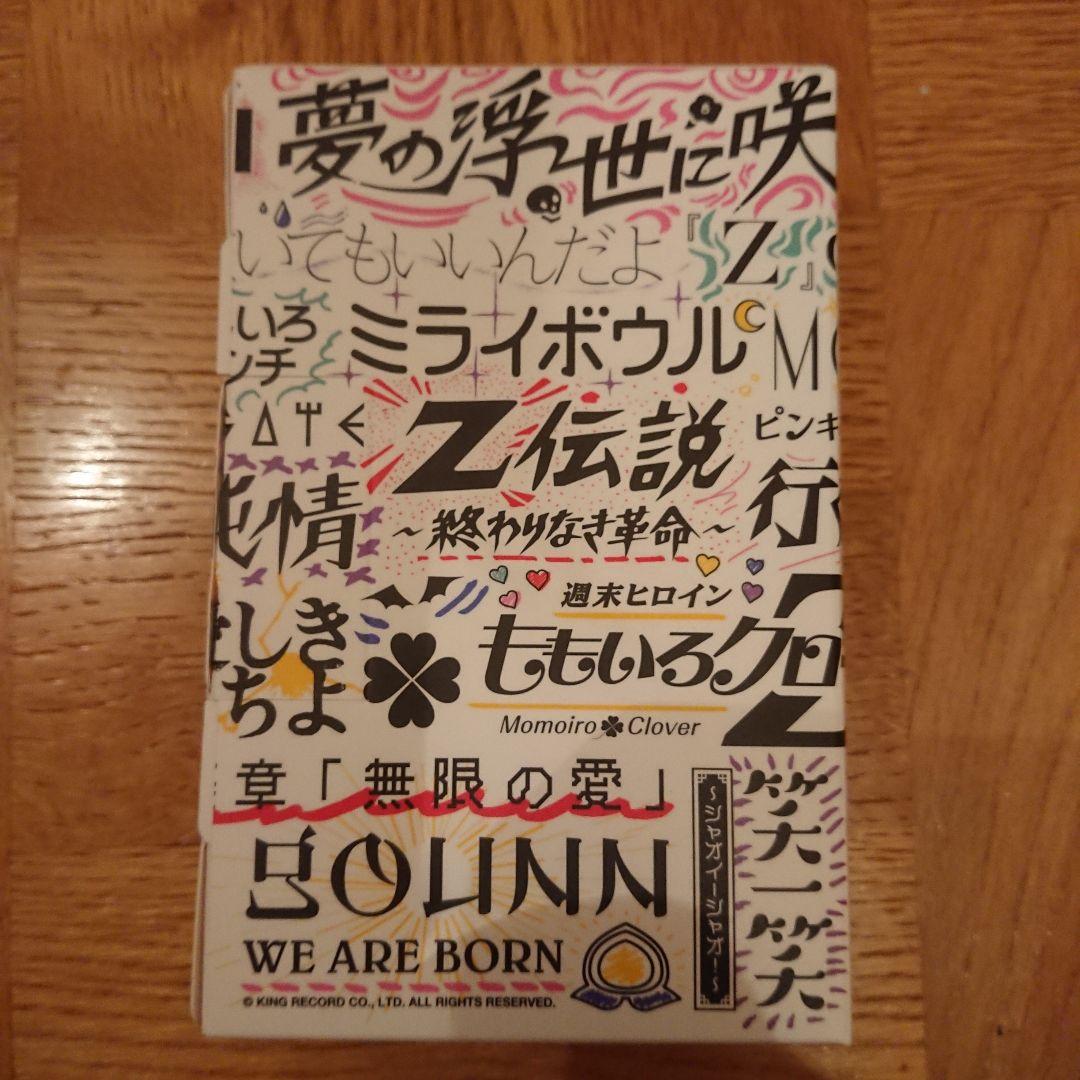 夢の浮世に咲
いてもいいんだよ
『Z』
いろ
ンチ
ミライボウル
M
Z伝説
～終わりなき革命～
ピンキ
行
純情
しき
ちよ
週末ヒロイン
ももいろクロ
Momoiro Clover
Z
章「無限の愛」
GOUNN
WE ARE BORN
© KING RECORD CO., LTD. ALL RIGHTS RESERVED.
～シャオイーシャオ!～
笑一笑